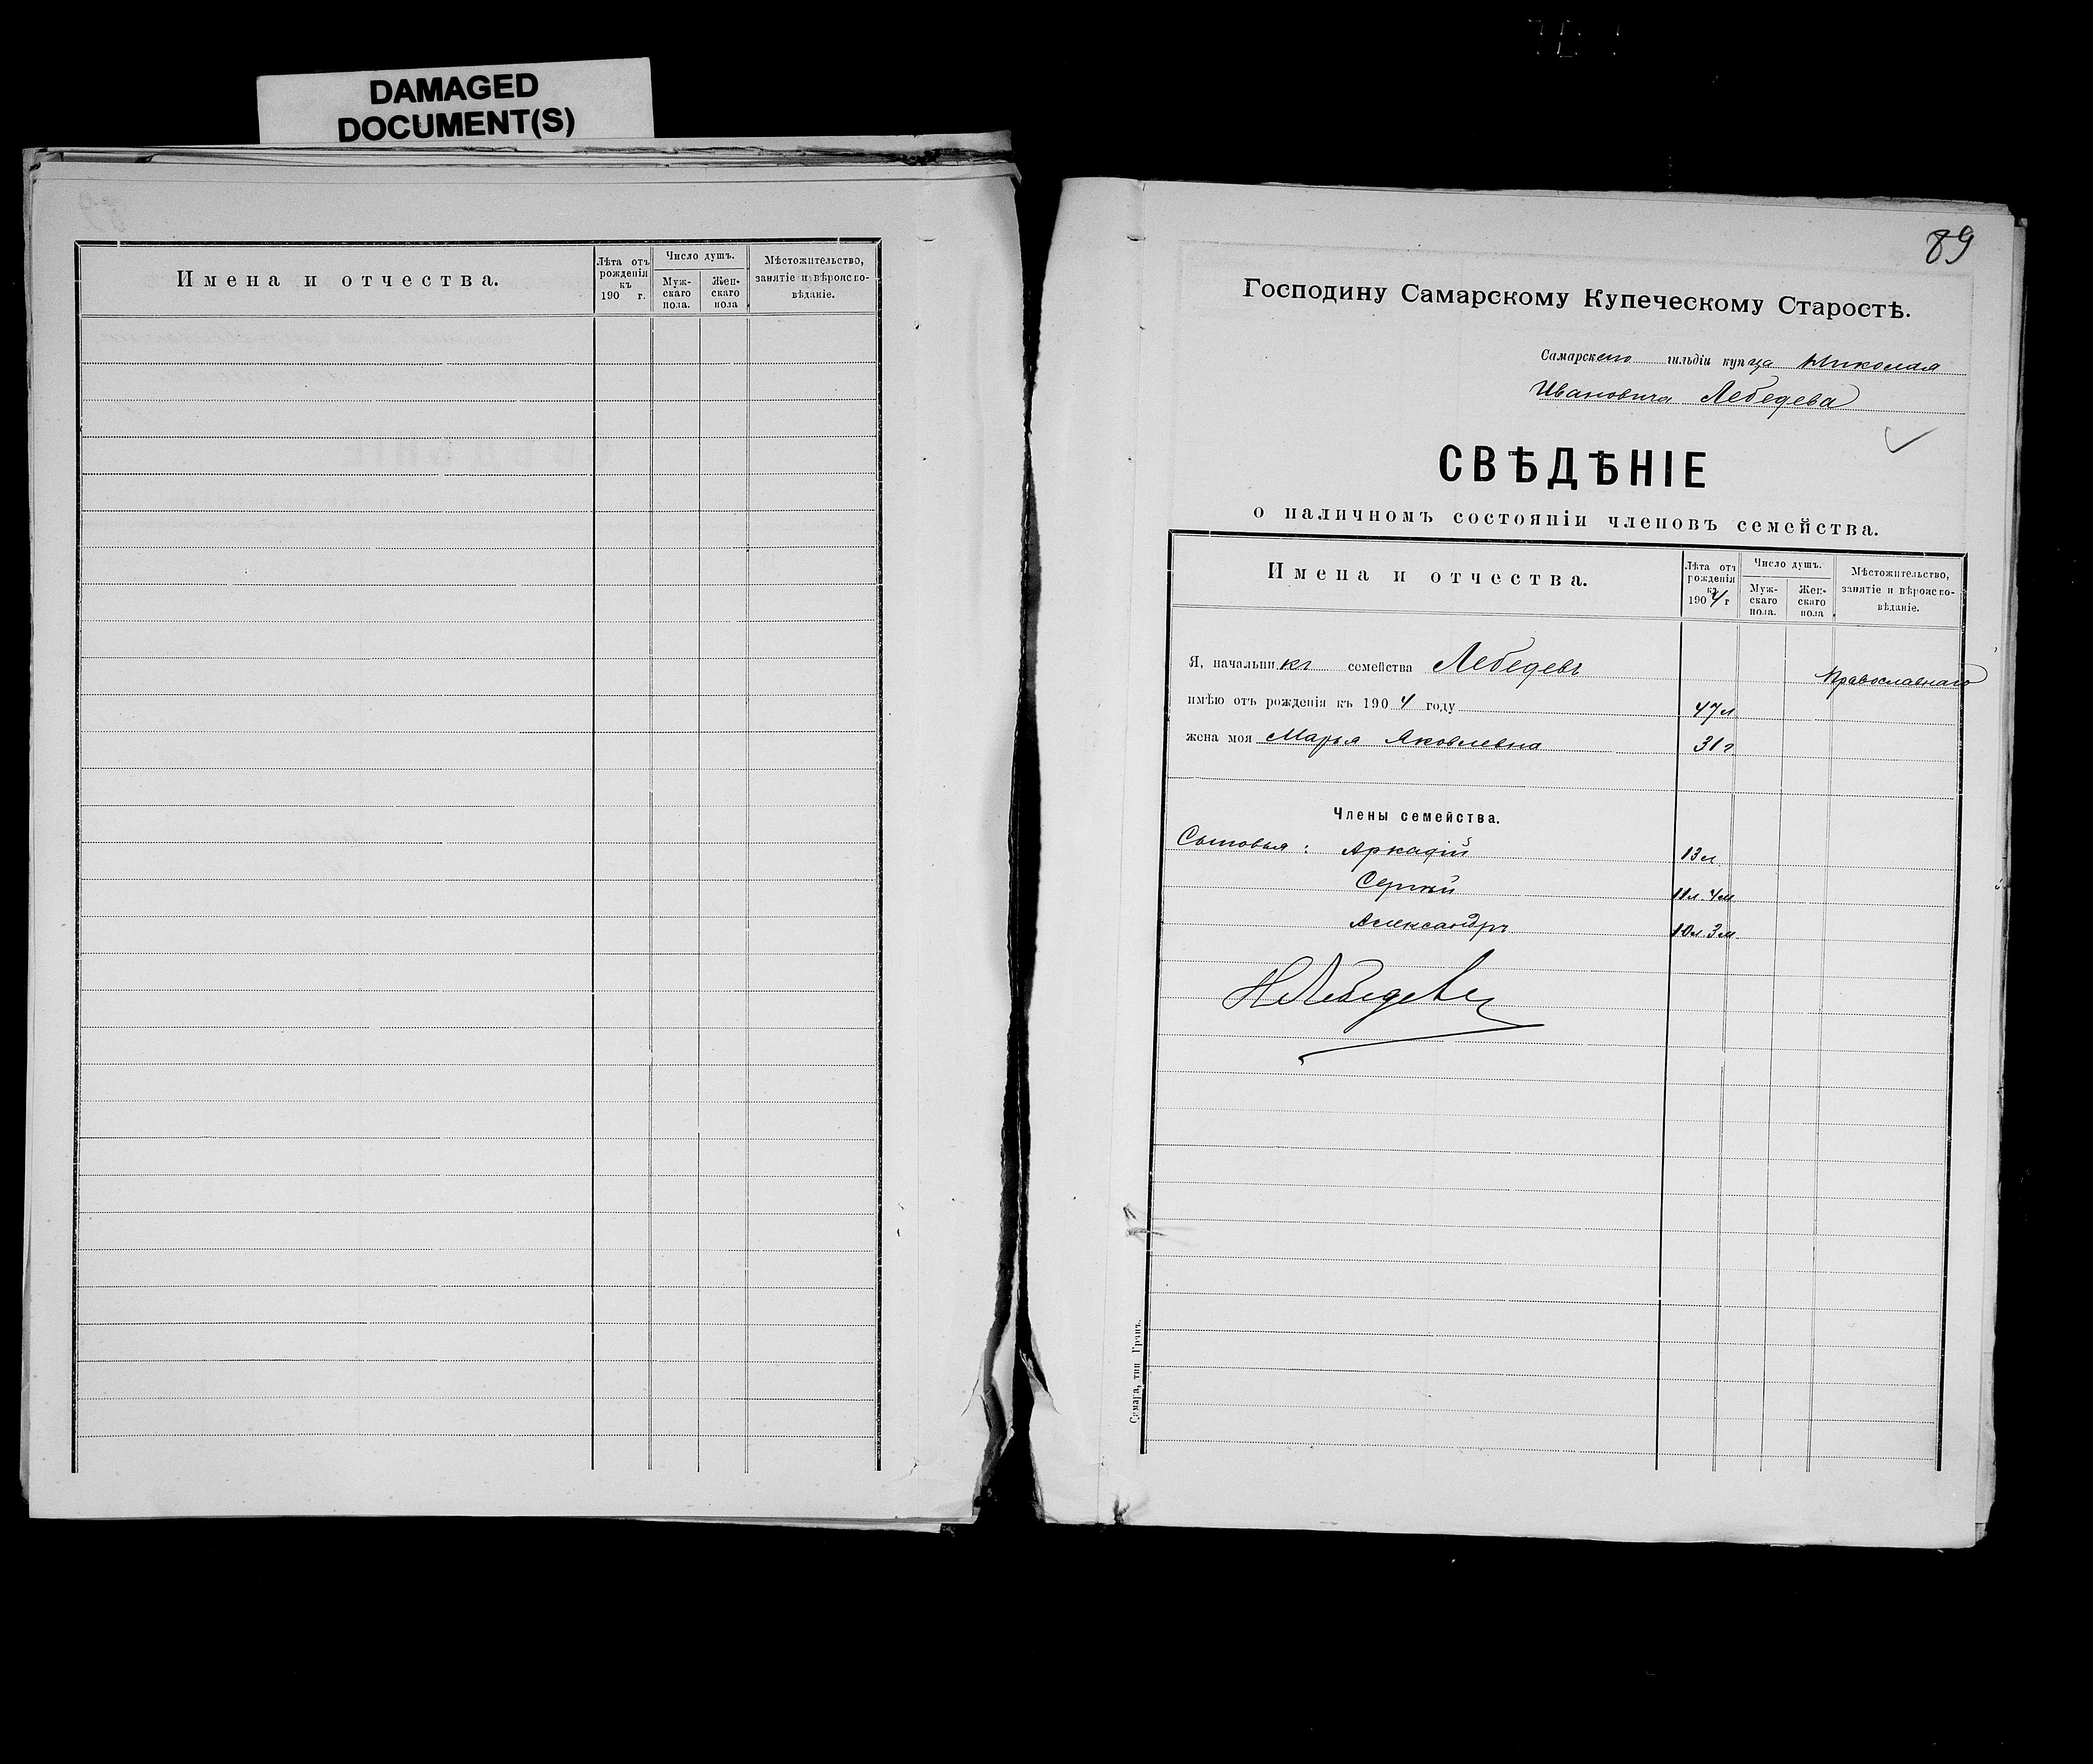 DAMAGED
DOCUMENT(S)
Имена и отчества.
Лѣта отъ рожденія къ 190 г.
Число душъ.
Мужскаго пола.
Женскаго пола
Мѣстожительство, занятіе и вѣроисповѣданіе.
89
Господину Самарскому Купеческому Старостѣ.
Самарского гильдіи купца Николая
Ивановича Лебедева
СВѢДѢНІЕ
о наличномъ состояніи членовъ семейства.
Имена и отчества.
Лѣта отъ рожденія къ 1904 г
Число душъ.
Мужскаго пола.
Женскаго пола
Мѣстожительство, занятіе и вѣроисповѣданіе.
Я, начальникъ семейства Лебедевъ Православнаго
имѣю отъ рожденія къ 1904 году 47 л
жена моя Марья Яковлевна 31 г
Члены семейства.
Сыновья: Аркадій 13 л
Сергѣй 11 л. 4 м
Александръ 10 л. 3 м.
НЛебедевъ
Самара, тип. Гранъ.